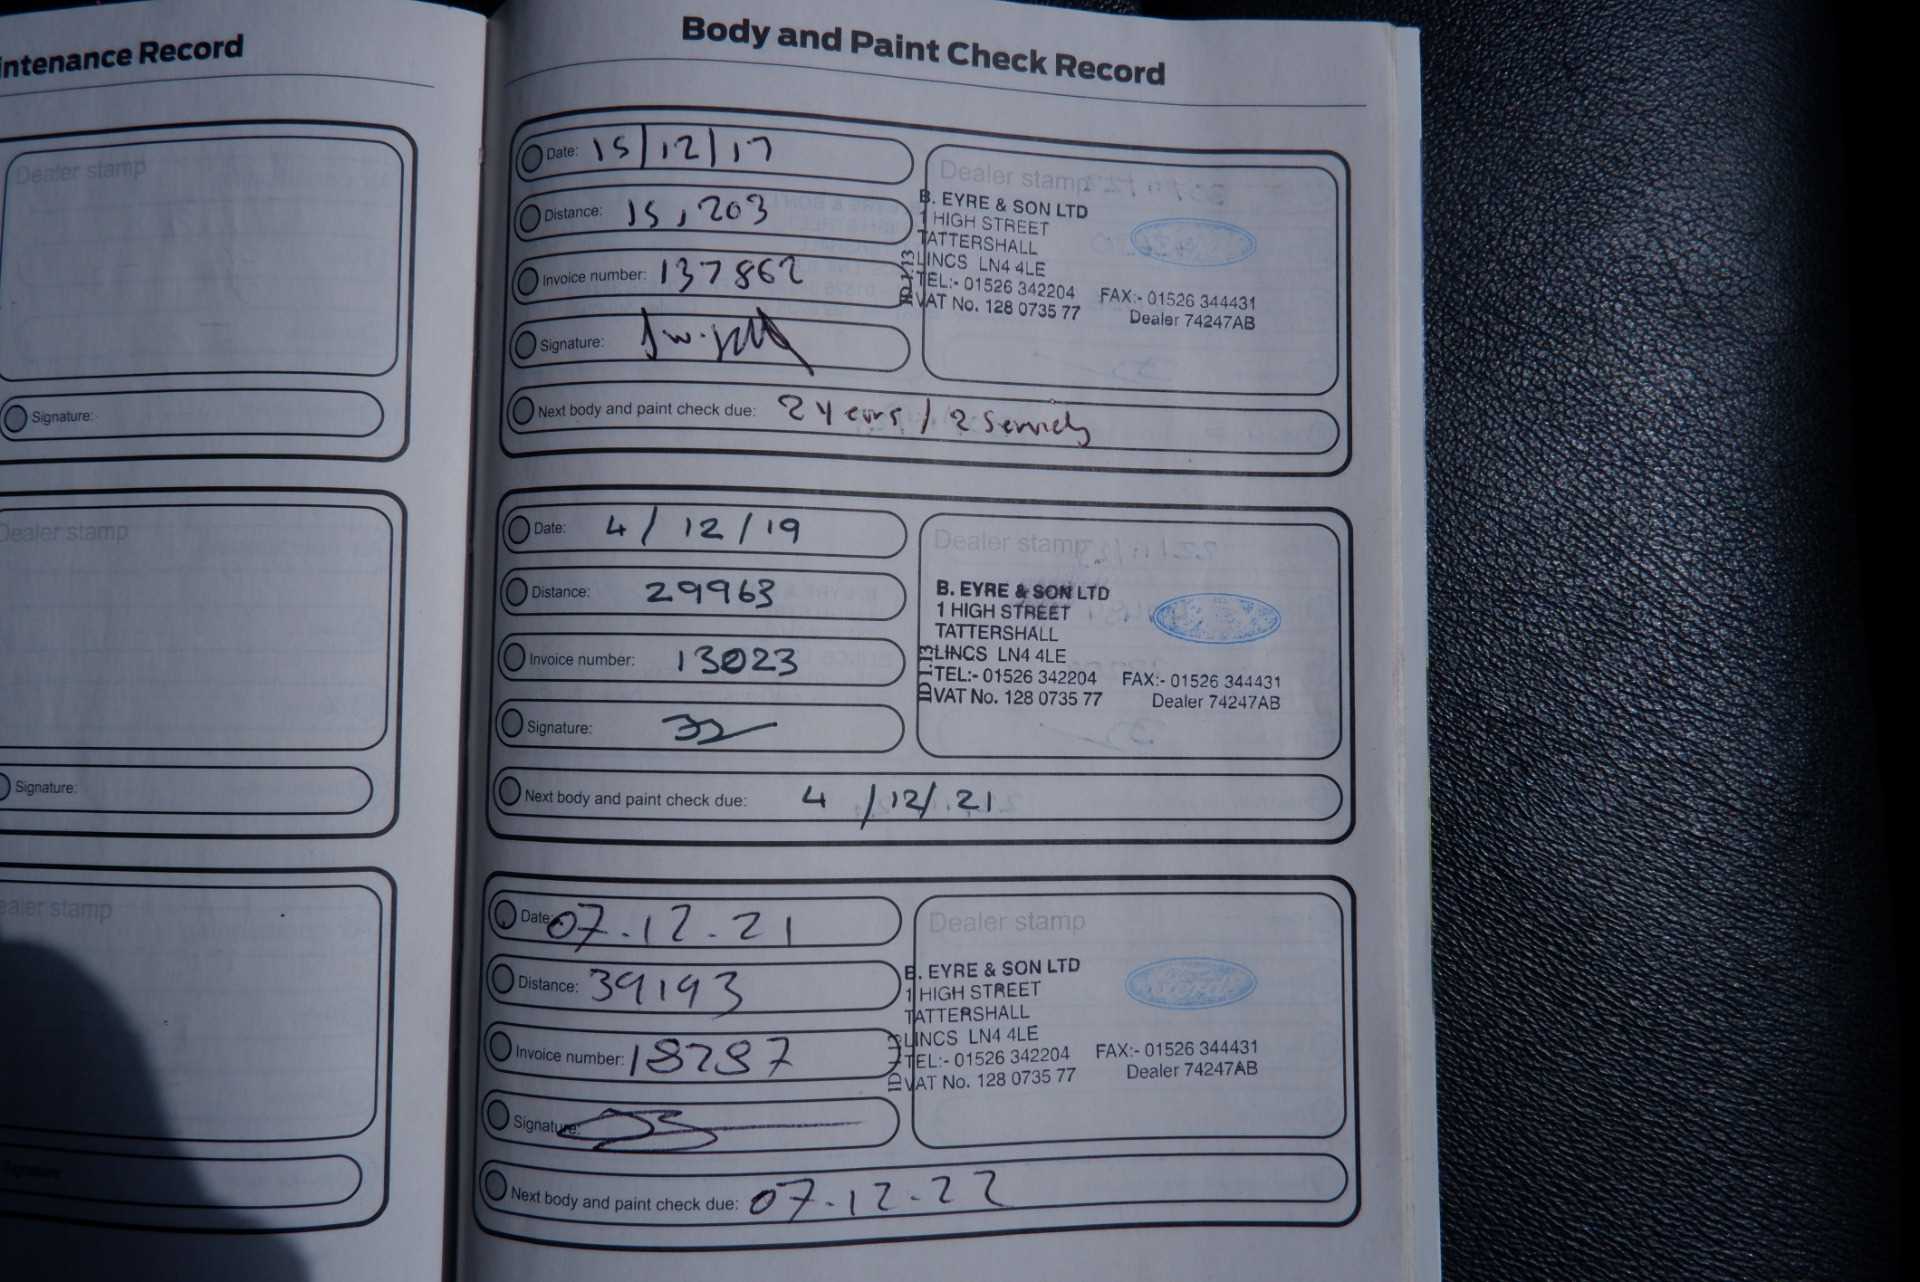 intenance Record
Dealer stamp
Signature:
Dealer stamp
Signature:
ealer stamp
Signature
Body and Paint Check Record
Date: 15/12/17
Distance: 15,203
Invoice number: 137862
Signature:
Dealer stamp
B. EYRE & SON LTD
1 HIGH STREET
TATTERSHALL
LINCS LN4 4LE
TEL:- 01526 342204 FAX:- 01526 344431
VAT No. 128 0735 77 Dealer 74247AB
Next body and paint check due: 2 Years / 2 Services
Date: 4/12/19
Distance: 29963
Invoice number: 13023
Signature:
Dealer stamp
B. EYRE & SON LTD
1 HIGH STREET
TATTERSHALL
LINCS LN4 4LE
TEL:- 01526 342204 FAX:- 01526 344431
VAT No. 128 0735 77 Dealer 74247AB
ID 1.13
Next body and paint check due: 4/12/21
Date: 07.12.21
Distance: 39193
Invoice number: 18287
Signature:
Dealer stamp
B. EYRE & SON LTD
1 HIGH STREET
TATTERSHALL
LINCS LN4 4LE
TEL:- 01526 342204 FAX:- 01526 344431
VAT No. 128 0735 77 Dealer 74247AB
Ford
Next body and paint check due: 07.12.22